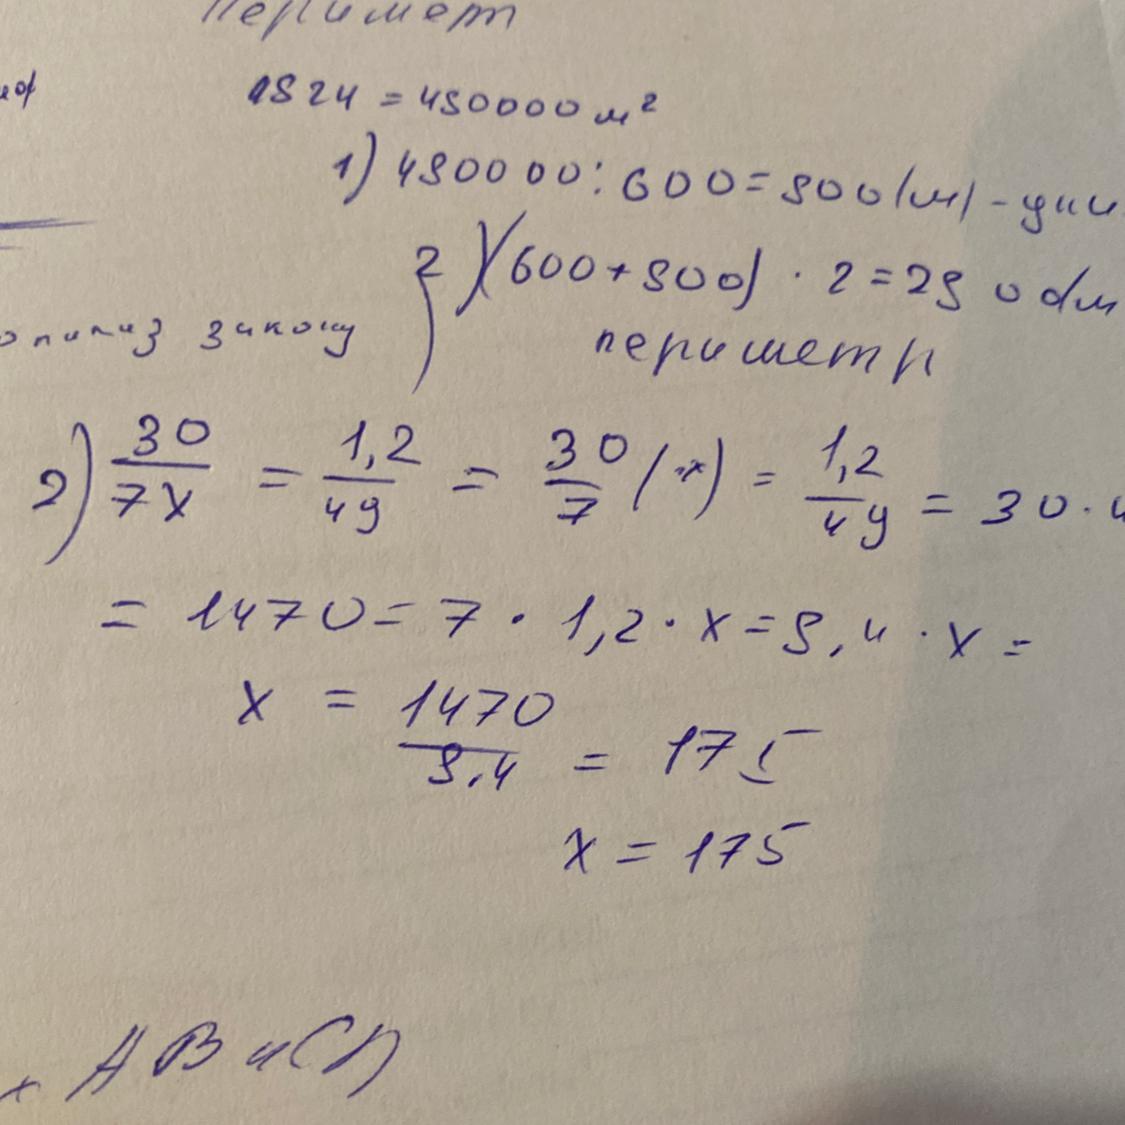 Перимет
48 га = 480000 м²
1) 480000 : 600 = 800 (м) - дли
2) (600 + 800) · 2 = 2800 (м
закону
периметр
2) 30/7x = 1,2/49 = 30/7 (·x) = 1,2/49 = 30 · 4
= 1470 = 7 · 1,2 · x = 8,4 · x =
x = 1470/8,4 = 175
x = 175
х AB и CD